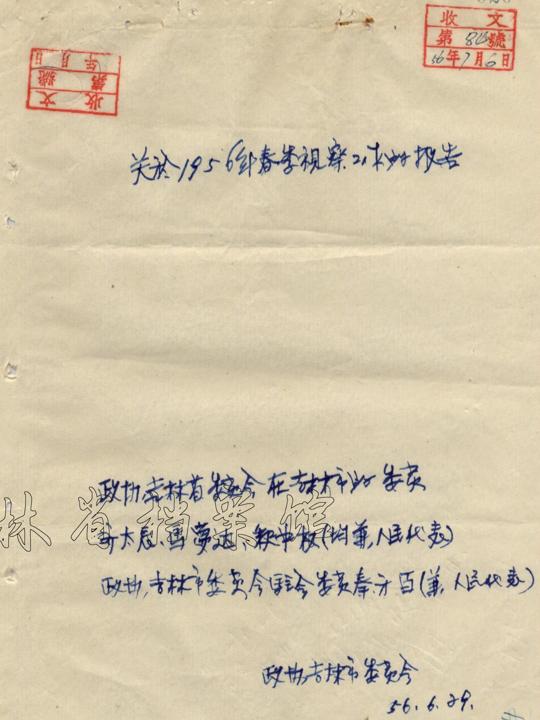 收文
第 号
年 月 日
收文
第 號
56年7月6日
关於1956年春季視察工作的报告
政协吉林省委员会在吉林市的委员
(均兼人民代表)
政协吉林市委员会 委员 (兼人民代表)
政协吉林市委员会
56.6.29.
林省档案馆